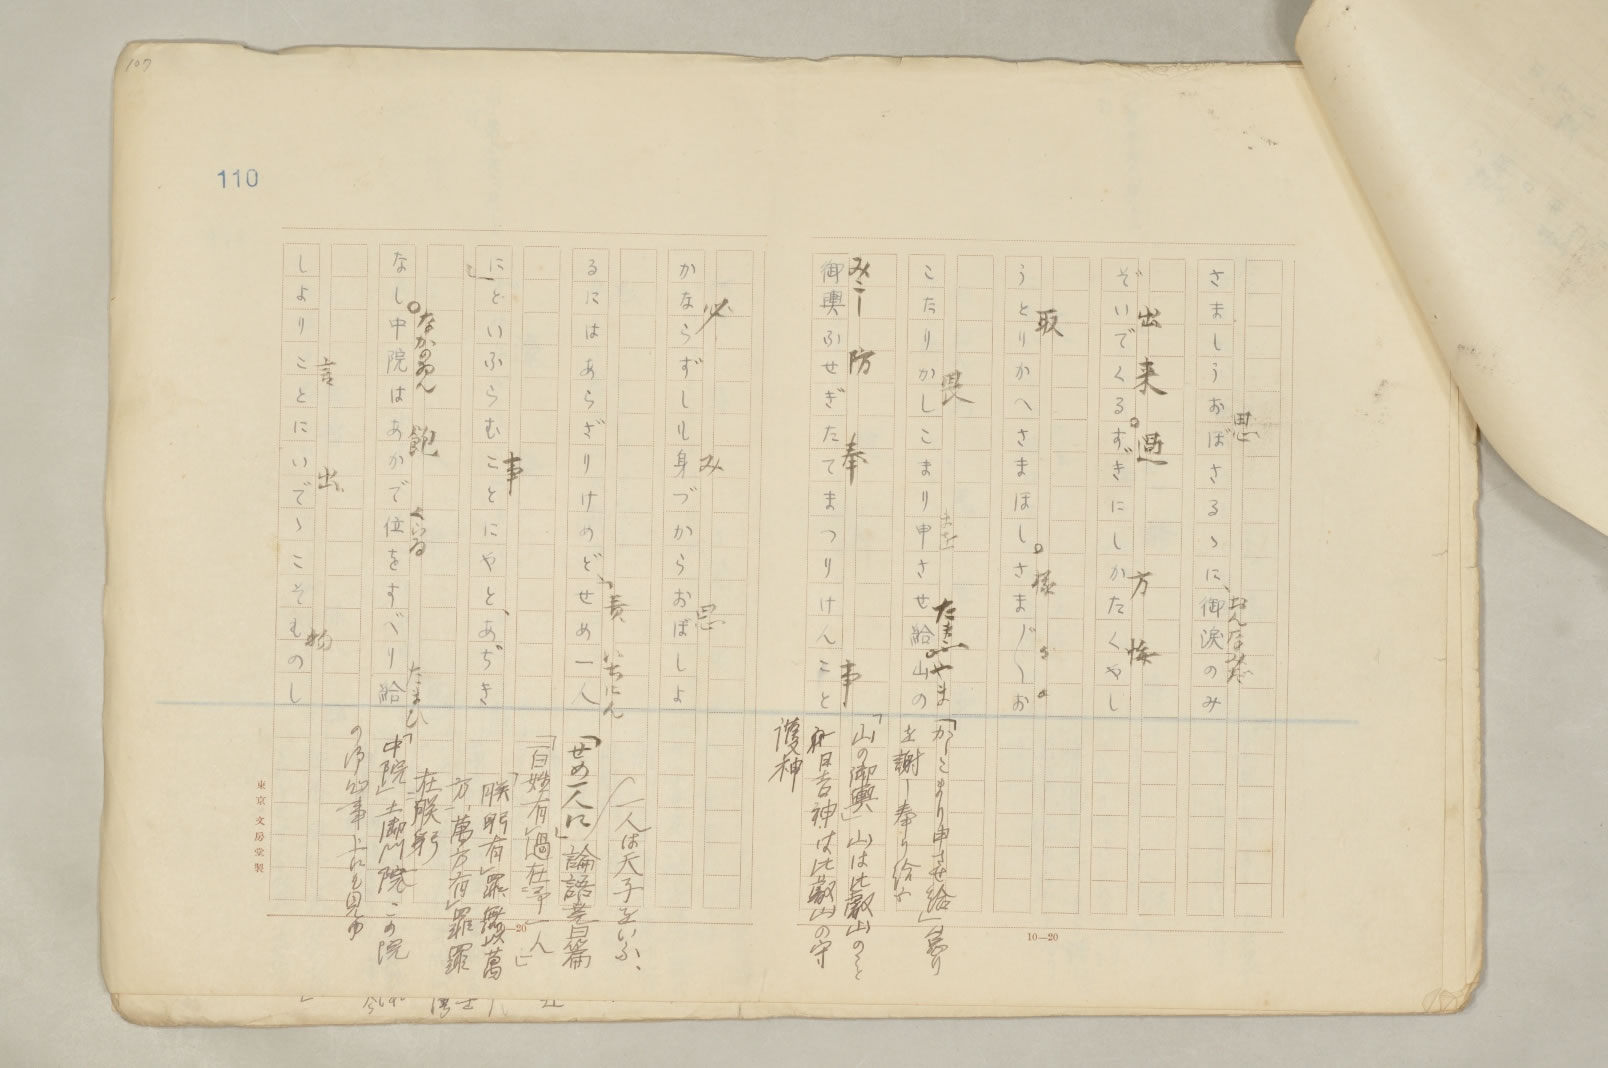 107
110
思
さましうおぼさるゝに、御涙のみ
おんなみだ
出来 過 方 悔
ぞいでくる。すぎにしかたくやし
取 様
うとりかへさまほし。さま〴〵お
畏 まを たまふ やま
こたりかしこまり申させ給。山の
みこし 防 奉 事
御輿ふせぎたてまつりけんこと
必 み 思
かならずしり身づからおぼしよ
責 いちにん
るにはあらざりけめど、「せめ一人
事
に」といふらむことにやと、あぢき
なかのゐん 飽 くらゐ たまひ
なし。中院はあかで位をすべり給
言 出 物
しよりことにいでゝこそものし
「かしこまり申させ給」怠り
を謝し奉り給ふ
「山の御輿」山は比叡山のこと
日吉神は比叡山の守
護神
一人は天子をいふ、
「せめ一人に」論語堯曰篇
「百姓有過在予一人」
「朕躬有罪無以萬
方、萬方有罪罪
在朕躬
「中院」土御門院、この院
の御事上にも見ゆ
東京文房堂製
10—20
—20